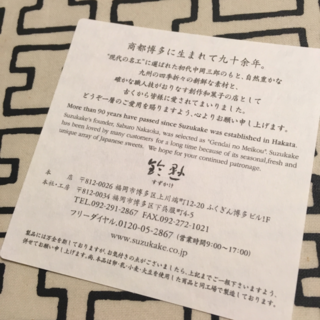 商都博多に生まれて九十余年。
"現代の名工"に選ばれた初代中岡三郎のもと、自然豊かな
九州の四季折々の新鮮な素材と、
確かな職人技がおりなす創作和菓子の店として
古くから皆様に愛されてまいりました。
どうぞ一層のご愛用を賜りますよう、心よりお願い申し上げます。
More than 90 years have passed since Suzukake was established in Hakata.
Suzukake's founder, Saburo Nakaoka, was selected as "Gendai no Meikou". Suzukake
has been loved by many customers for a long time because of its seasonal,fresh and
unique array of Japanese sweets. We hope for your continued patronage.
鈴懸
すずかけ
本店 〒812-0026 福岡市博多区上川端町12-20 ふくぎん博多ビル1F
本社・工房 〒812-0034 福岡市博多区下呉服町4-5
TEL.092-291-2867 FAX.092-272-1021
フリーダイヤル.0120-05-2867 (営業時間9:00〜17:00)
www.suzukake.co.jp
製品には万全を期しておりますが、お気付きの点がございましたら、上記までご一報下さいますよう、
併せてお願い申し上げます。尚、本品は卵・乳・小麦・大豆を使用した商品と同工場で製造しております。